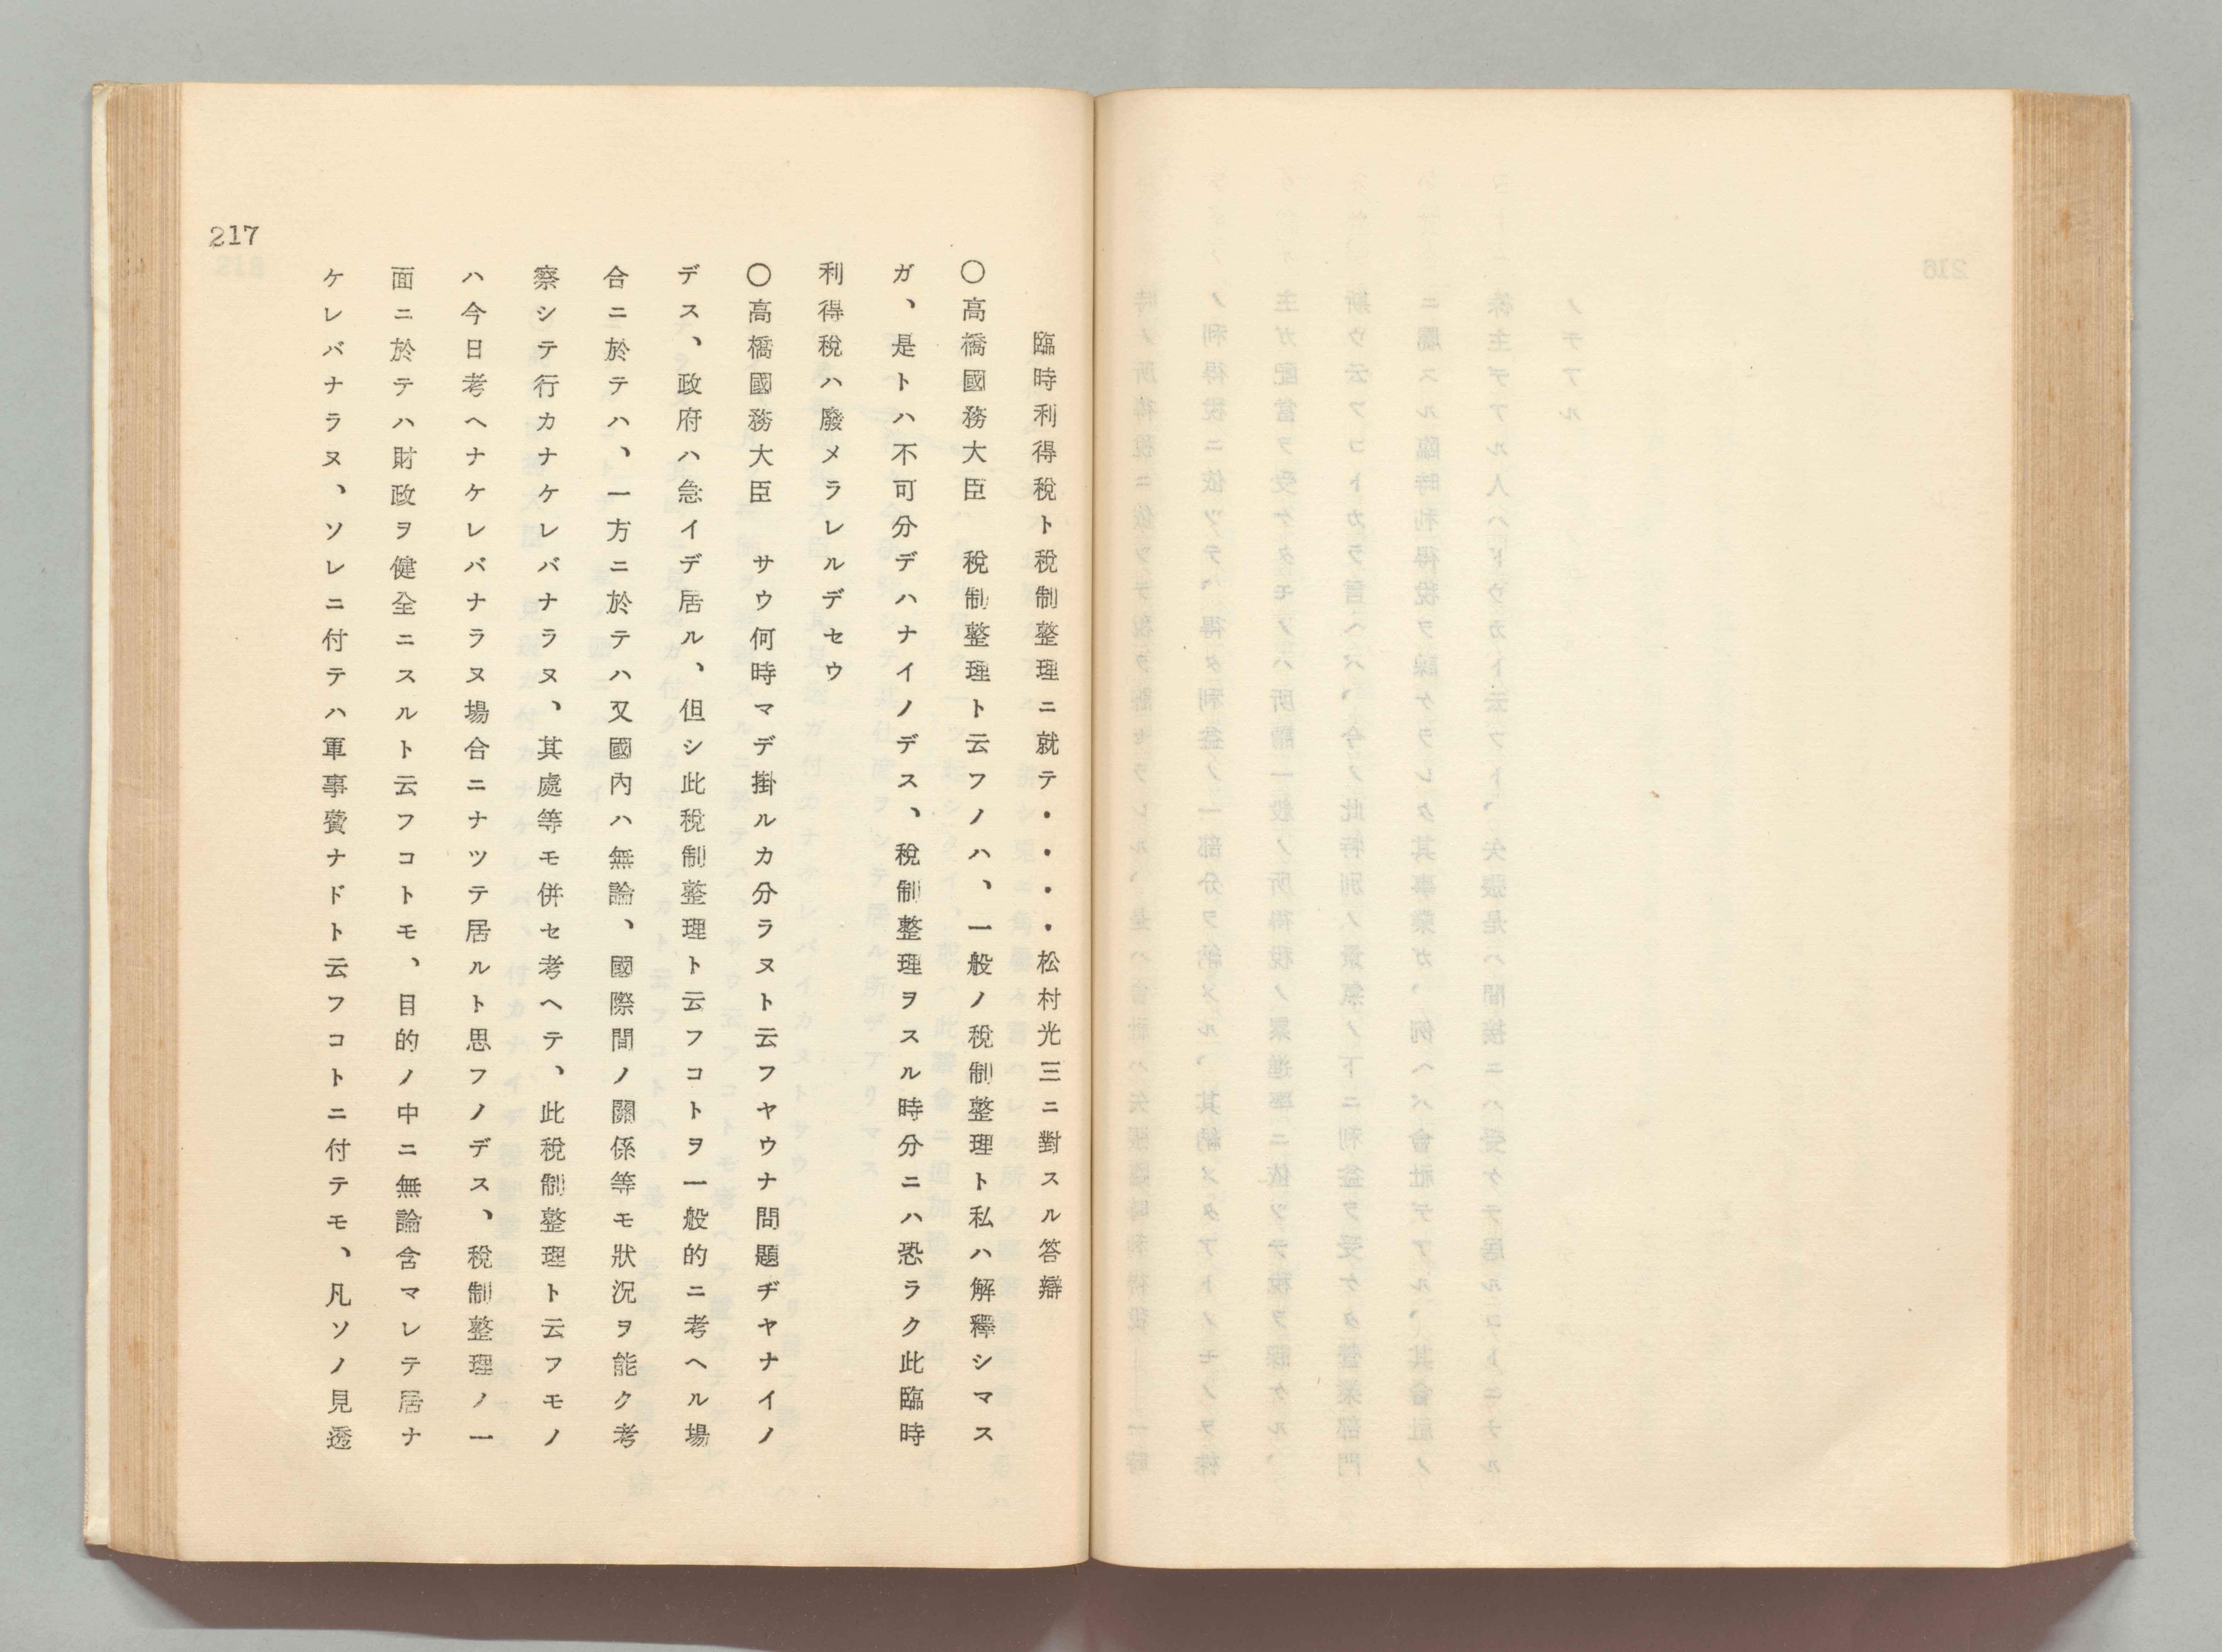 臨時利得稅ト稅制整理ニ就テ・・・・松村光三ニ對スル答辯
〇高橋國務大臣　稅制整理ト云フノハ、一般ノ稅制整理ト私ハ解釋シマス
ガ、是トハ不可分デハナイノデス、稅制整理ヲスル時分ニハ恐ラク此臨時
利得稅ハ廢メラレルデセウ
〇高橋國務大臣　サウ何時マデ掛ルカ分ラヌト云フヤウナ問題ヂヤナイノ
デス、政府ハ急イデ居ル、但シ此稅制整理ト云フコトヲ一般的ニ考ヘル場
合ニ於テハ、一方ニ於テハ又國內ハ無論、國際間ノ關係等モ狀況ヲ能ク考
察シテ行カナケレバナラヌ、其處等モ併セ考ヘテ、此稅制整理ト云フモノ
ハ今日考ヘナケレバナラヌ場合ニナツテ居ルト思フノデス、稅制整理ノ一
面ニ於テハ財政ヲ健全ニスルト云フコトモ、目的ノ中ニ無論含マレテ居ナ
ケレバナラヌ、ソレニ付テハ軍事費ナドト云フコトニ付テモ、凡ソノ見透
217